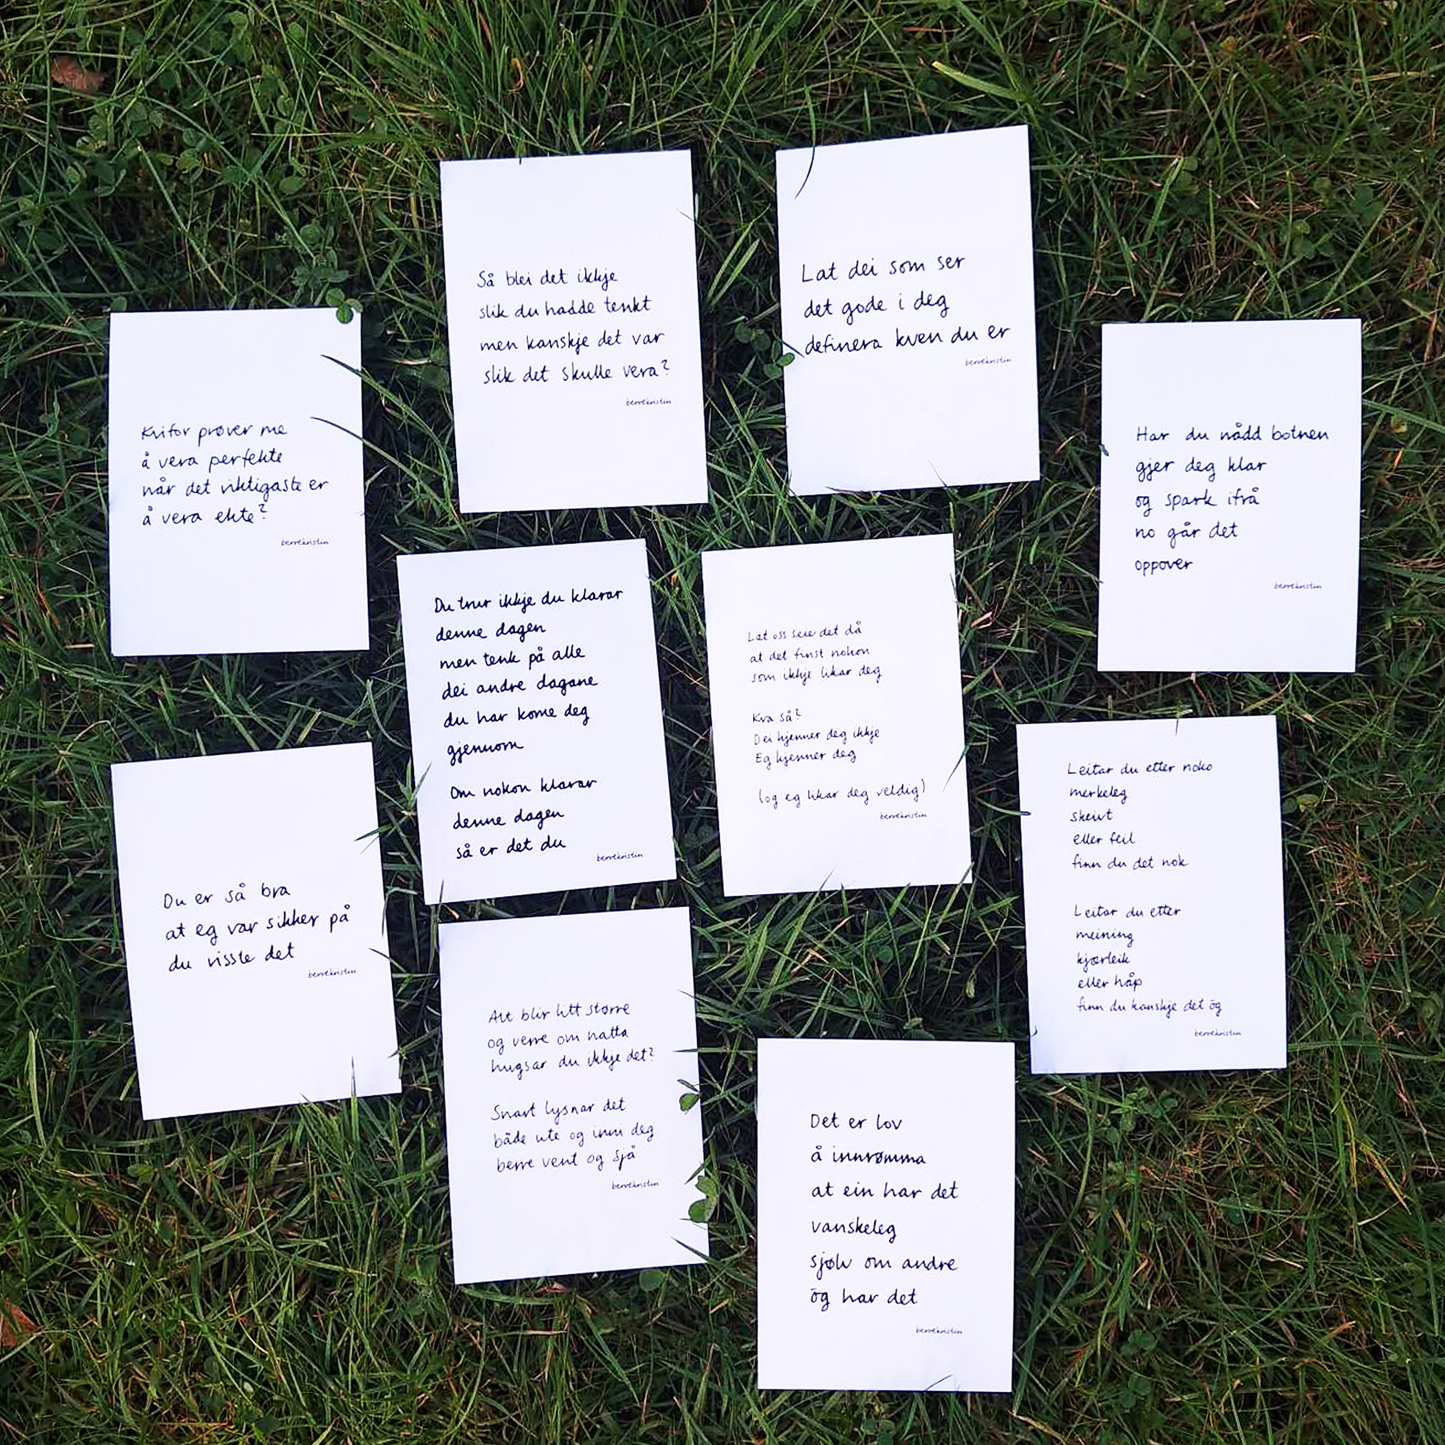 Så blei det ikkje
slik du hadde tenkt
men kanskje det var
slik det skulle vera?
berrekristin
Lat dei som ser
det gode i deg
definera kven du er
berrekristin
Kvifor prøver me
å vera perfekte
når det viktigaste er
å vera ekte?
berrekristin
Har du nådd botnen
gjer deg klar
og spark ifrå
no går det
oppover
berrekristin
Du trur ikkje du klarar
denne dagen
men tenk på alle
dei andre dagane
du har kome deg
gjennom
Om nokon klarar
denne dagen
så er det du
berrekristin
Lat oss seie det då
at det finst nokon
som ikkje likar deg
Kva så?
Dei kjenner deg ikkje
Eg kjenner deg
(og eg likar deg veldig)
berrekristin
Leitar du etter noko
merkeleg
skeivt
eller feil
finn du det nok
Leitar du etter
meining
kjærleik
eller håp
finn du kanskje det òg
berrekristin
Du er så bra
at eg var sikker på
du visste det
berrekristin
Alt blir litt større
og verre om natta
hugsar du ikkje det?
Snart lysnar det
både ute og inni deg
berre vent og sjå
berrekristin
Det er lov
å innrømma
at ein har det
vanskeleg
sjølv om andre
òg har det
berrekristin